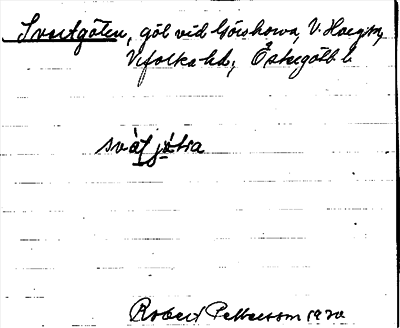 Svartgölen, göl vid Görshorva, V. Harg sn,
Vifolka hd, Östergötl. l.
svát jö̀lra
Robert Pettersson 1920